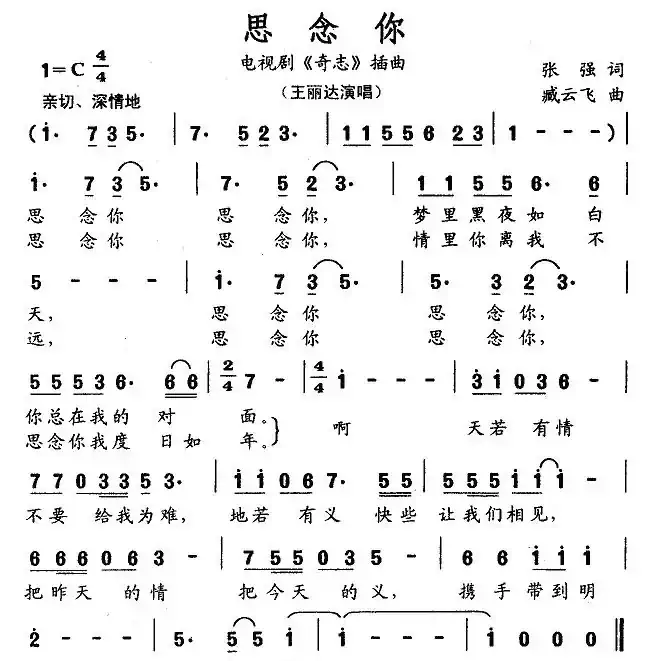 思念你
电视剧《奇志》插曲
1=C 4/4
张 强 词
(王丽达演唱)
亲切、深情地
臧云飞 曲
(i· 7 3 5· | 7· 5 2 3· | 1 1 5 5 6 2 3 | 1 - - -) |
i· 7 3 5· | 7· 5 2 3· | 1 1 5 5 6· 6 |
思 念 你 思 念 你, 梦里黑夜如 白
思 念 你 思 念 你, 情里你离我 不
5 - - - | i· 7 3 5· | 5· 3 2 3· |
天, 思 念 你 思 念 你,
远, 思 念 你 思 念 你,
5 5 5 3 6· 6 6 | 2/4 7 - | 4/4 i - - - | 3 i 0 3 6 - |
你总在我的 对 面。 啊 天若 有情
思念你我度 日如 年。}
7 7 0 3 3 5 3· | i i 0 6 7· 5 5 | 5 5 5 i i i - |
不要 给我为难, 地若 有义 快些 让我们相见,
6 6 6 0 6 3 - | 7 5 5 0 3 5 - | 6 6 i i i |
把昨天 的情 把今天 的义, 携手带到明
2 - - - | 5· 5 5 i | i - - - | i 0 0 0 ‖